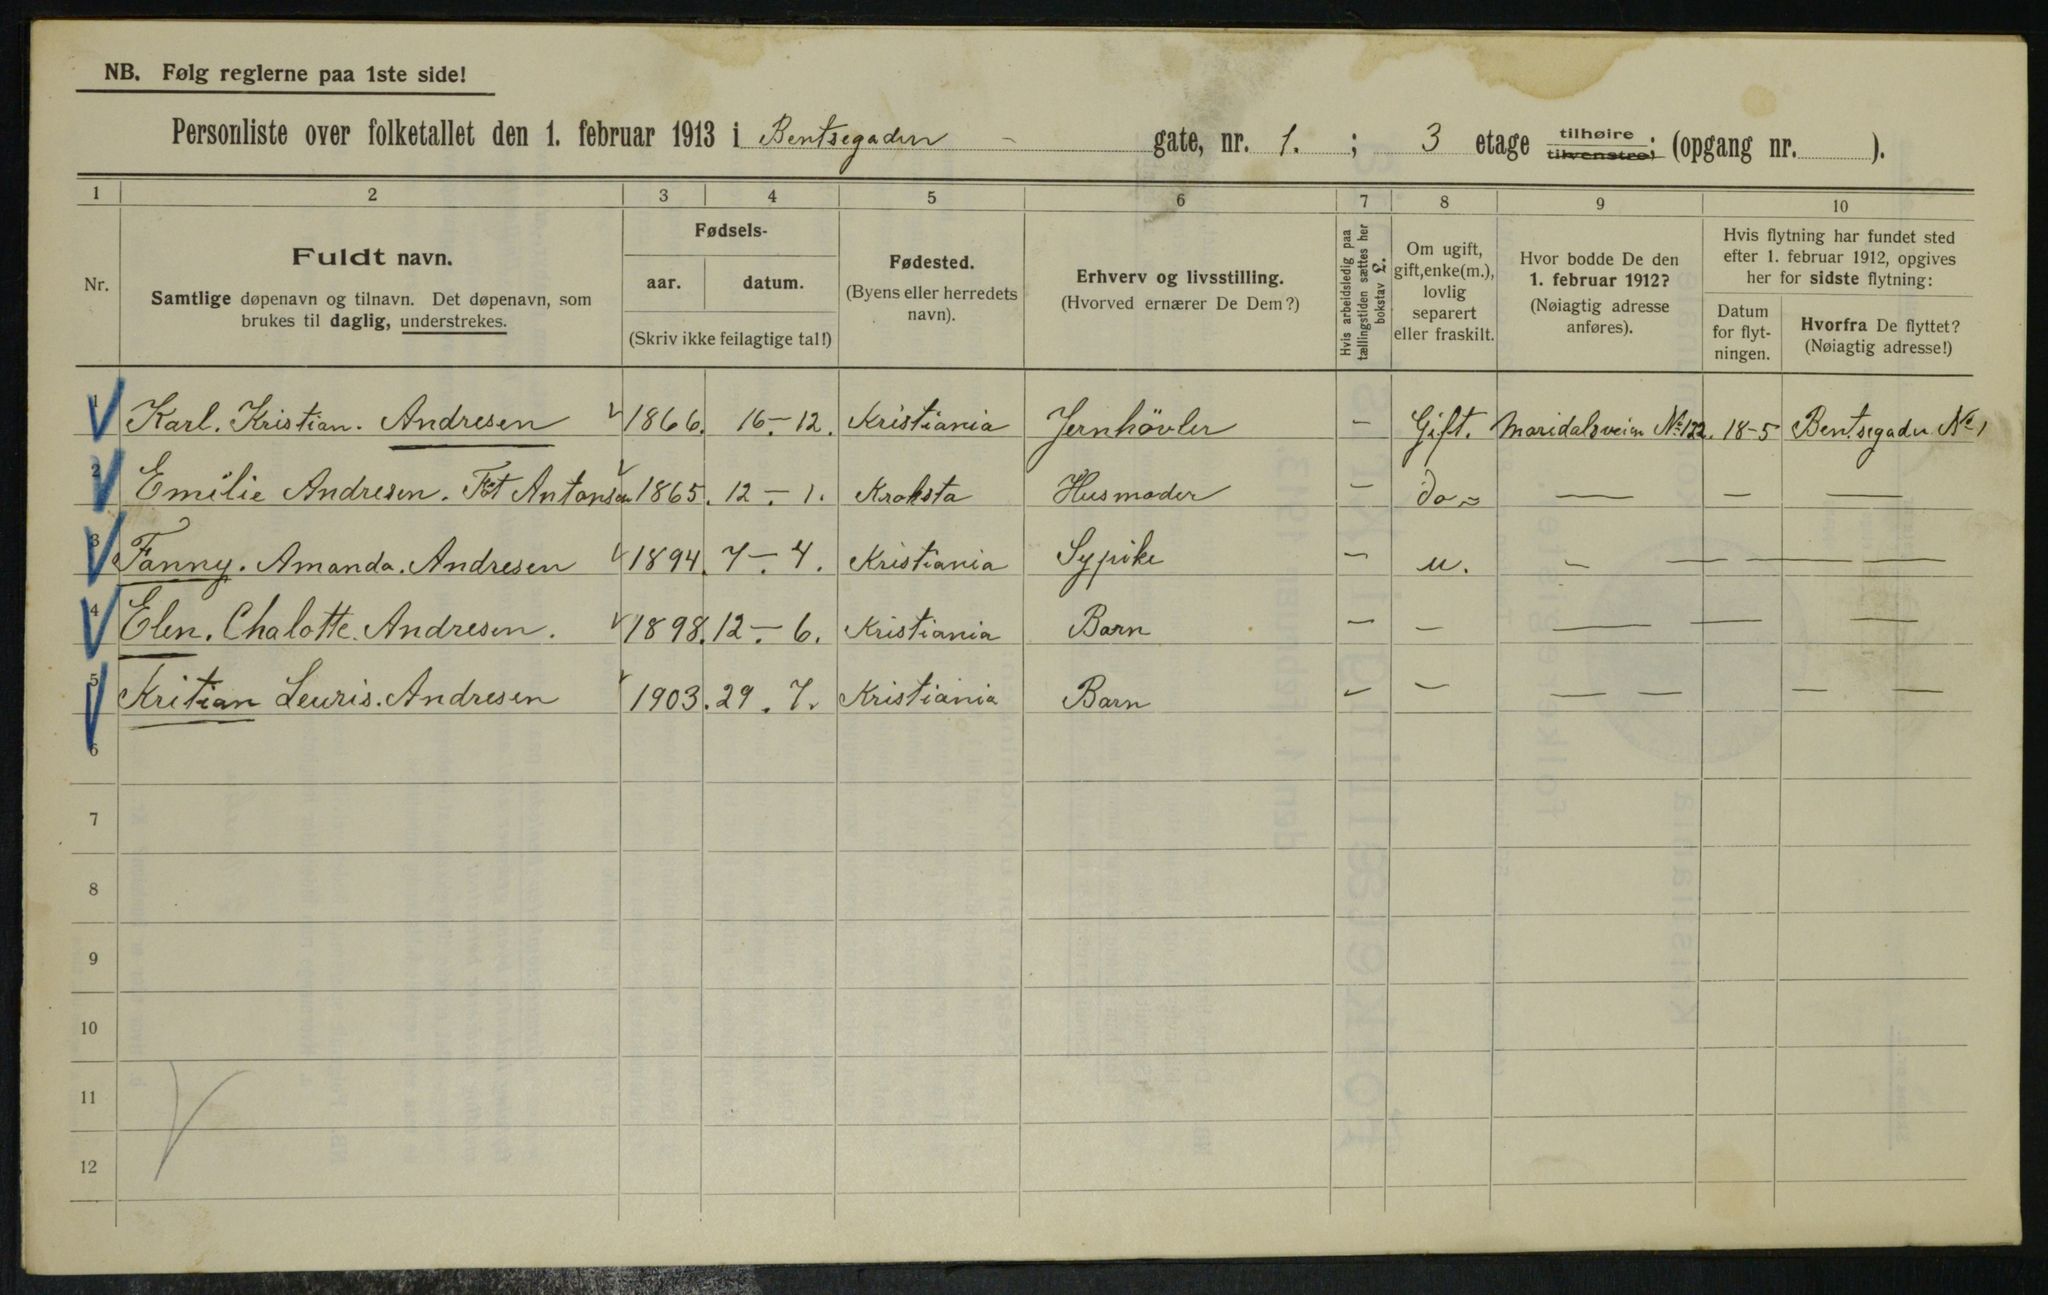 NB. Følg reglerne paa 1ste side!
Personliste over folketallet den 1. februar 1913 i Bentsegaden - gate, nr. 1. ; 3 etage tilhøire tilvenstre; (opgang nr. ).
1 2 3 4 5 6 7 8 9 10
Nr.
Fuldt navn.
Samtlige døpenavn og tilnavn. Det døpenavn, som
brukes til daglig, understrekes.
Fødsels-
aar. datum.
(Skriv ikke feilagtige tal!)
Fødested.
(Byens eller herredets
navn).
Erhverv og livsstilling.
(Hvorved ernærer De Dem?)
Hvis arbeidsledig paa
tællingstiden sættes her
bokstav L.
Om ugift,
gift, enke(m.),
lovlig
separert
eller fraskilt.
Hvor bodde De den
1. februar 1912?
(Nøiagtig adresse
anføres).
Hvis flytning har fundet sted
efter 1. februar 1912, opgives
her for sidste flytning:
Datum
for flyt-
ningen.
Hvorfra De flyttet?
(Nøiagtig adresse!)
1 Karl. Kristian. Andresen 1866. 16-12. Kristiania Jernhövler - Gift. Maridalsveien No 122. 18-5 Bentsegaden No 1
2 Emilie Andresen. Föt Antonsen 1865. 12-1. Kroksta Husmoder - do - — - —
3 Fanny. Amanda. Andresen 1894. 7-4. Kristiania Sypike - u. - — — —
4 Elen. Chalotte. Andresen. 1898. 12-6. Kristiania Barn - - — — —
5 Kritian Leuris. Andresen 1903. 29.7. Kristiania Barn - - — — — —
6
7
8
9
10
11
12